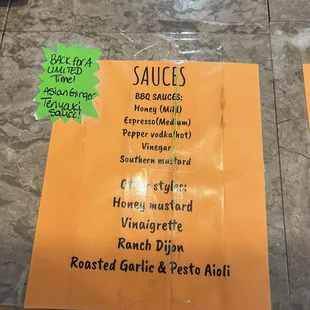 BACK FOR A
LIMITED
Time!
Asian Ginger
Teriyaki
Sauce!
SAUCES
BBQ SAUCES:
Honey (Mild)
Espresso(Medium)
Pepper vodka(hot)
Vinegar
Southern mustard
Other styles:
Honey mustard
Vinaigrette
Ranch Dijon
Roasted Garlic & Pesto Aioli